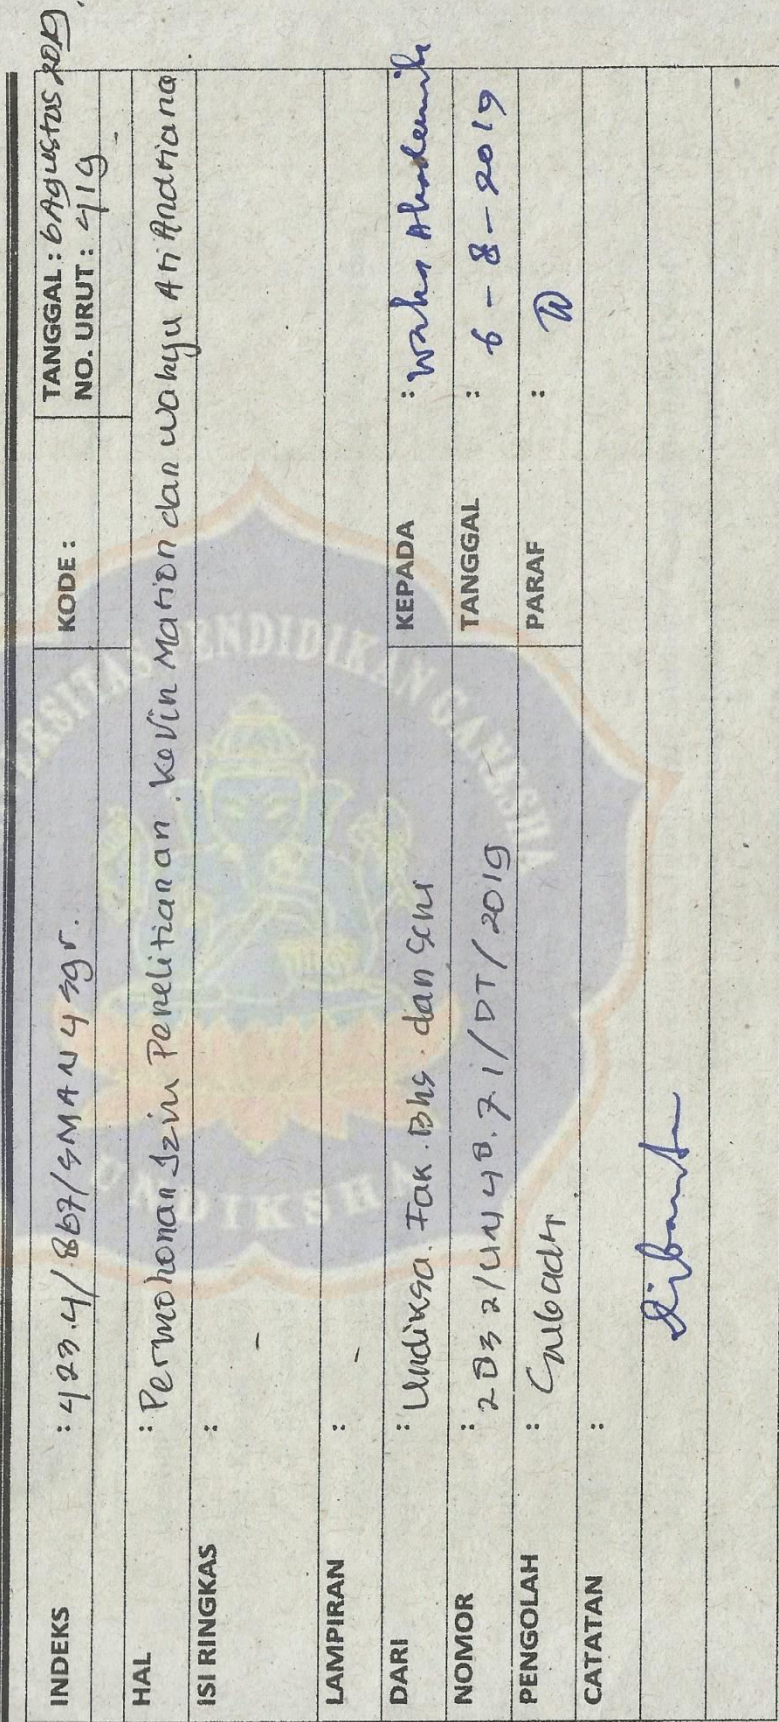 INDEKS : 423.4/867/SMAN 4 sgr. KODE : TANGGAL : 6 Agustus 2019.
NO. URUT : 419
HAL : Permohonan Izin Penelitianan Kevin Marion dan Wahyu Ari Andriana
ISI RINGKAS : -
LAMPIRAN : -
DARI : Undiksa. Fak. Bhs. dan Seni KEPADA : Waka Akademik
NOMOR : /DT/2019 TANGGAL : 6-8-2019
PENGOLAH : PARAF :
CATATAN :
Dibantu
UNIVERSITAS PENDIDIKAN GANESHA
UNDIKSHA